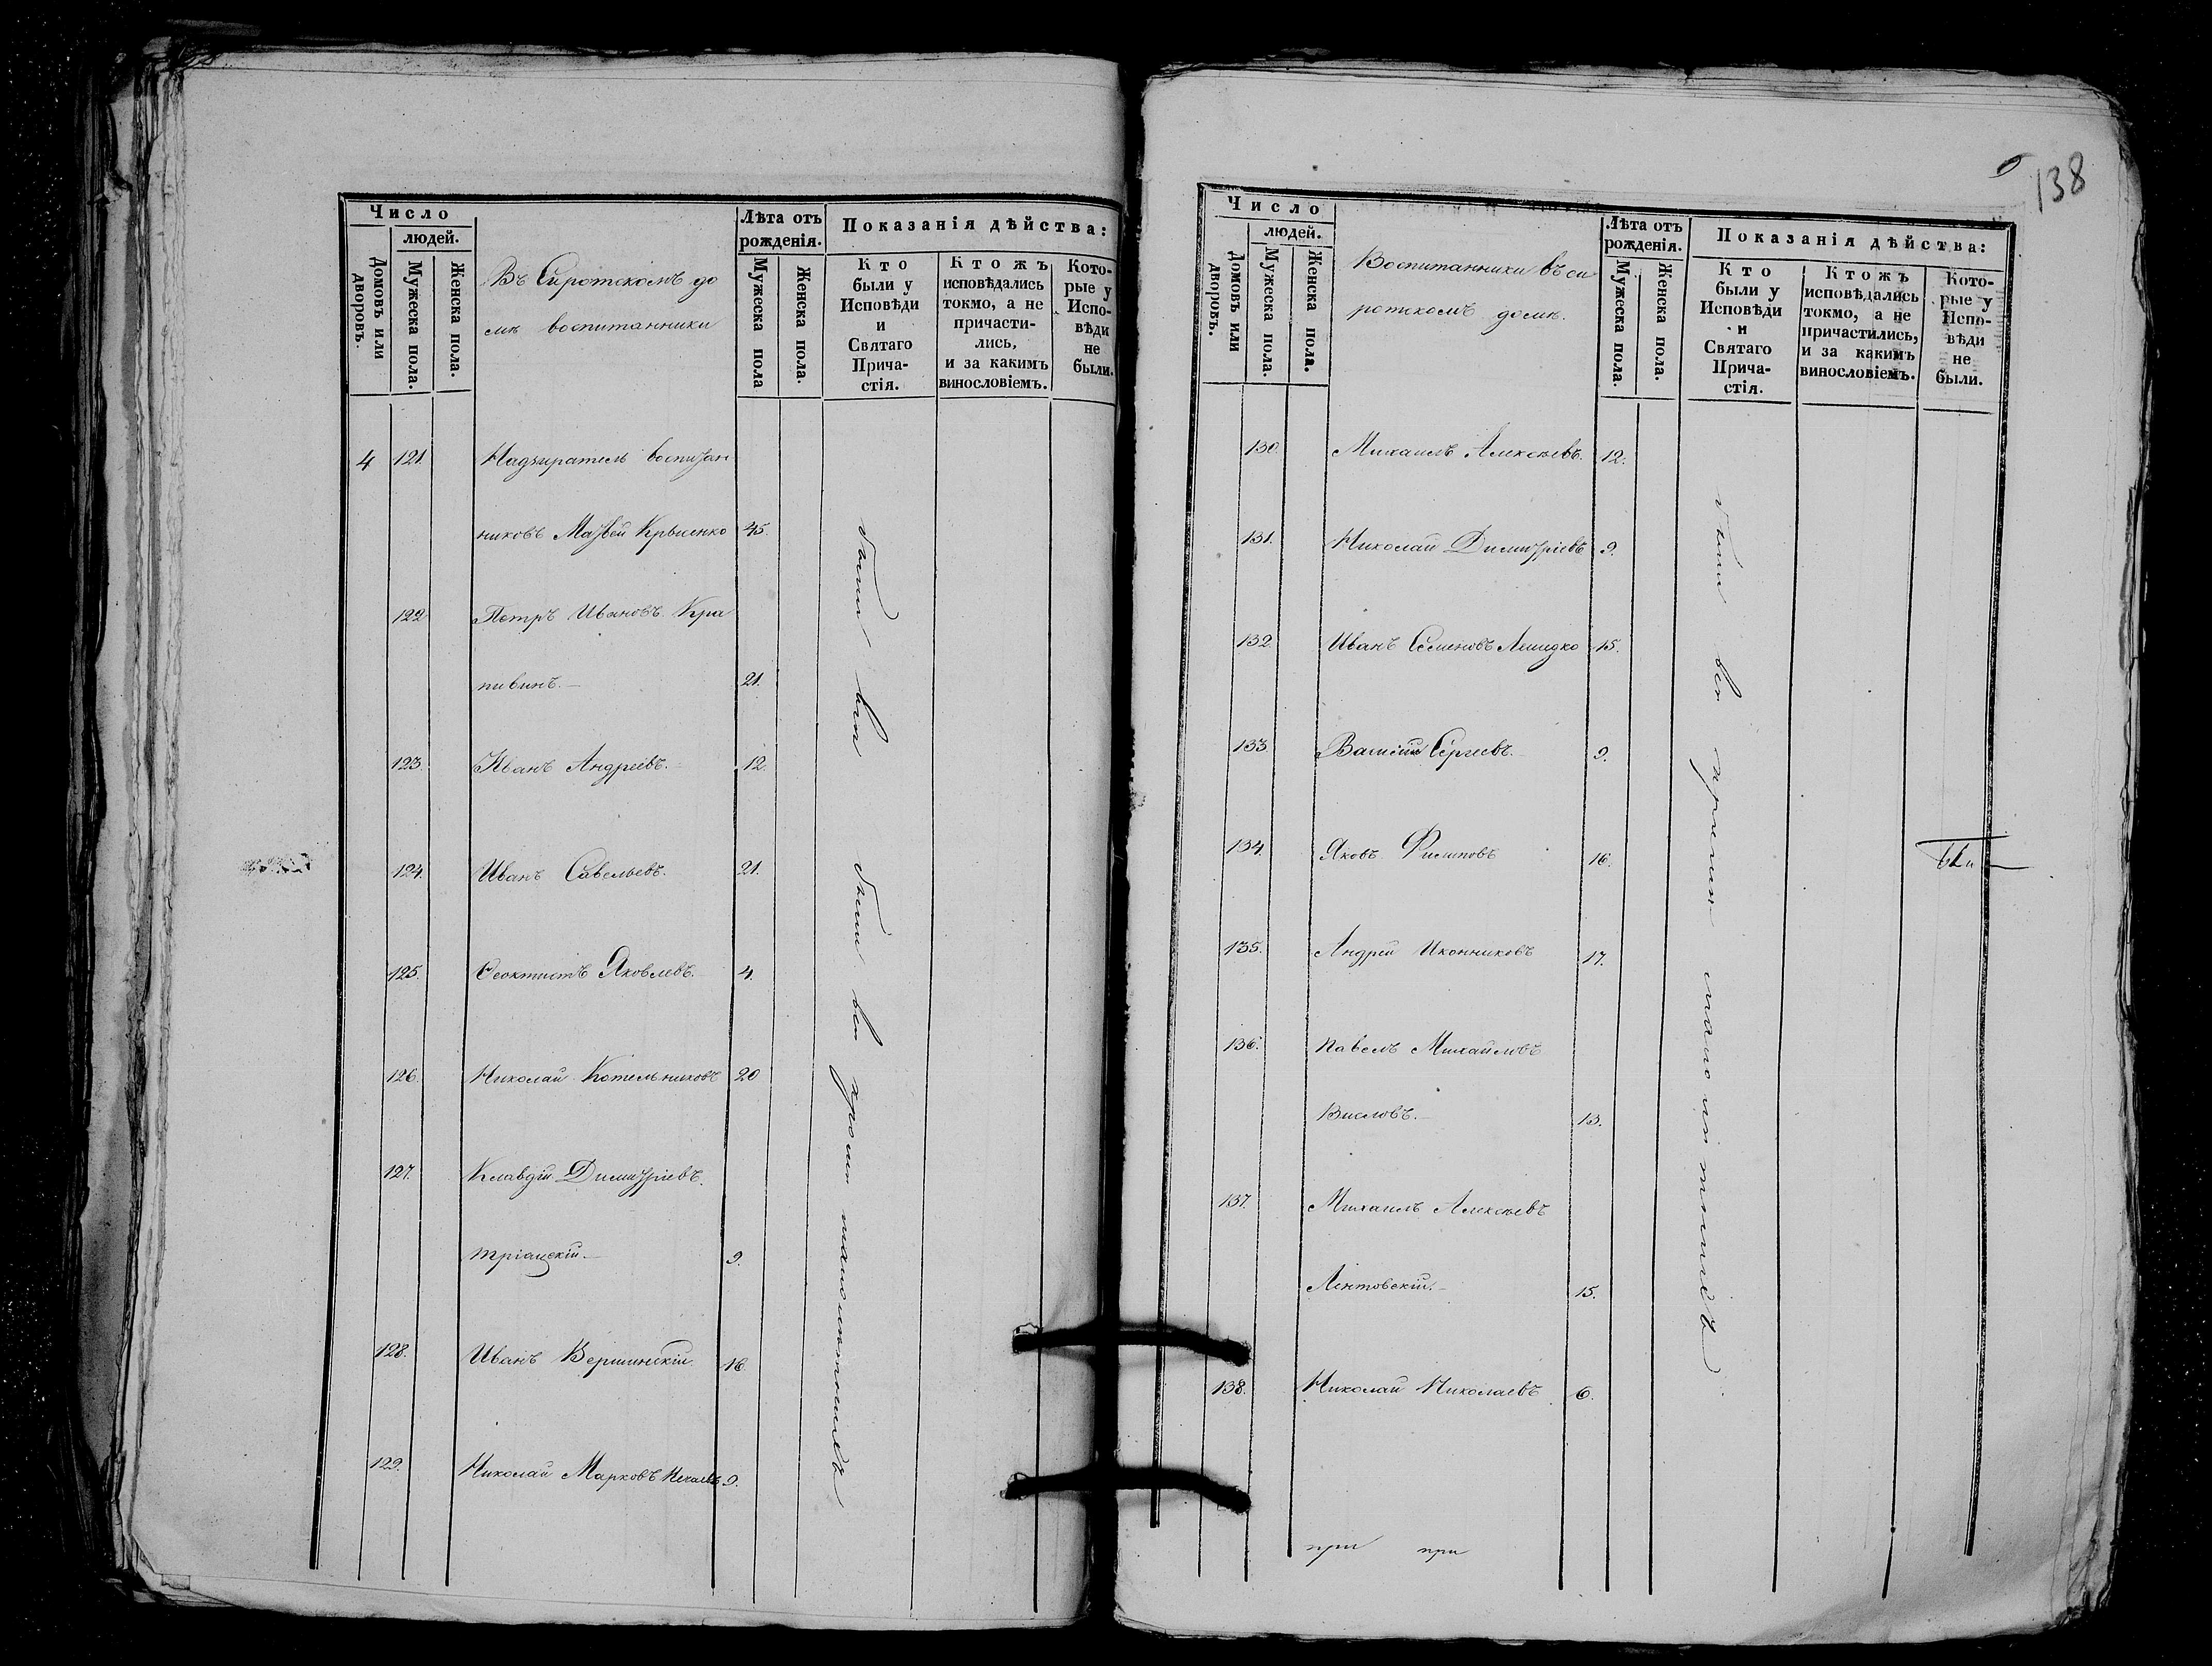 Число
людей.
Домовъ или дворовъ.
Мужеска пола.
Женска пола.
Въ Сиротскомъ до
мѣ воспитанники
Лѣта отъ рожденія.
Мужеска пола
Женска пола.
Показанія дѣйства:
Кто были у Исповѣди и Святаго Прича-
стія.
Ктожъ исповѣдались токмо, а не причасти-
лись, и за какимъ винословіемъ.
Кото-
рые у Испо-
вѣди не были.
4 121. Надзиратель воспитан
никовъ Матвей Крысенко 45.
122 Петръ Ивановъ Кра
пивинъ. 21.
123. Иванъ Андреевъ. 12.
124. Иванъ Савельевъ. 21.
125. Феоктистъ Яковлевъ. 4.
126. Николай Котельниковъ 20
127. Клавдій Димитріевъ.
9.
128. Иванъ Вершинскій. 16.
129. Николай Марковъ 9.
были все
были все кромѣ малолѣтнихъ
138
Число
людей.
Домовъ или дворовъ.
Мужеска пола.
Женска пола.
Воспитанники въ си
ротскомъ домѣ.
Лѣта отъ рожденія.
Мужеска пола.
Женска пола.
Показанія дѣйства:
Кто были у Исповѣди и Святаго Прича-
стія.
Ктожъ исповѣдались токмо, а не причастились, и за какимъ винословіемъ.
Кото-
рые у Испо-
вѣди не были.
130. Михаилъ Алексѣевъ. 12.
131. Николай Димитріевъ 9.
132. Иванъ Семеновъ 15.
133. Василій Сергеевъ. 9.
134. Яковъ Филиповъ 16.
135. Андрей Иконниковъ 17.
136. Павелъ Михайловъ
Висловъ. 13.
137. Михаилъ Алексѣевъ
Лентовскій. 15.
138. Николай Николаевъ 6.
были все кромѣ малолѣтнихъ
при при